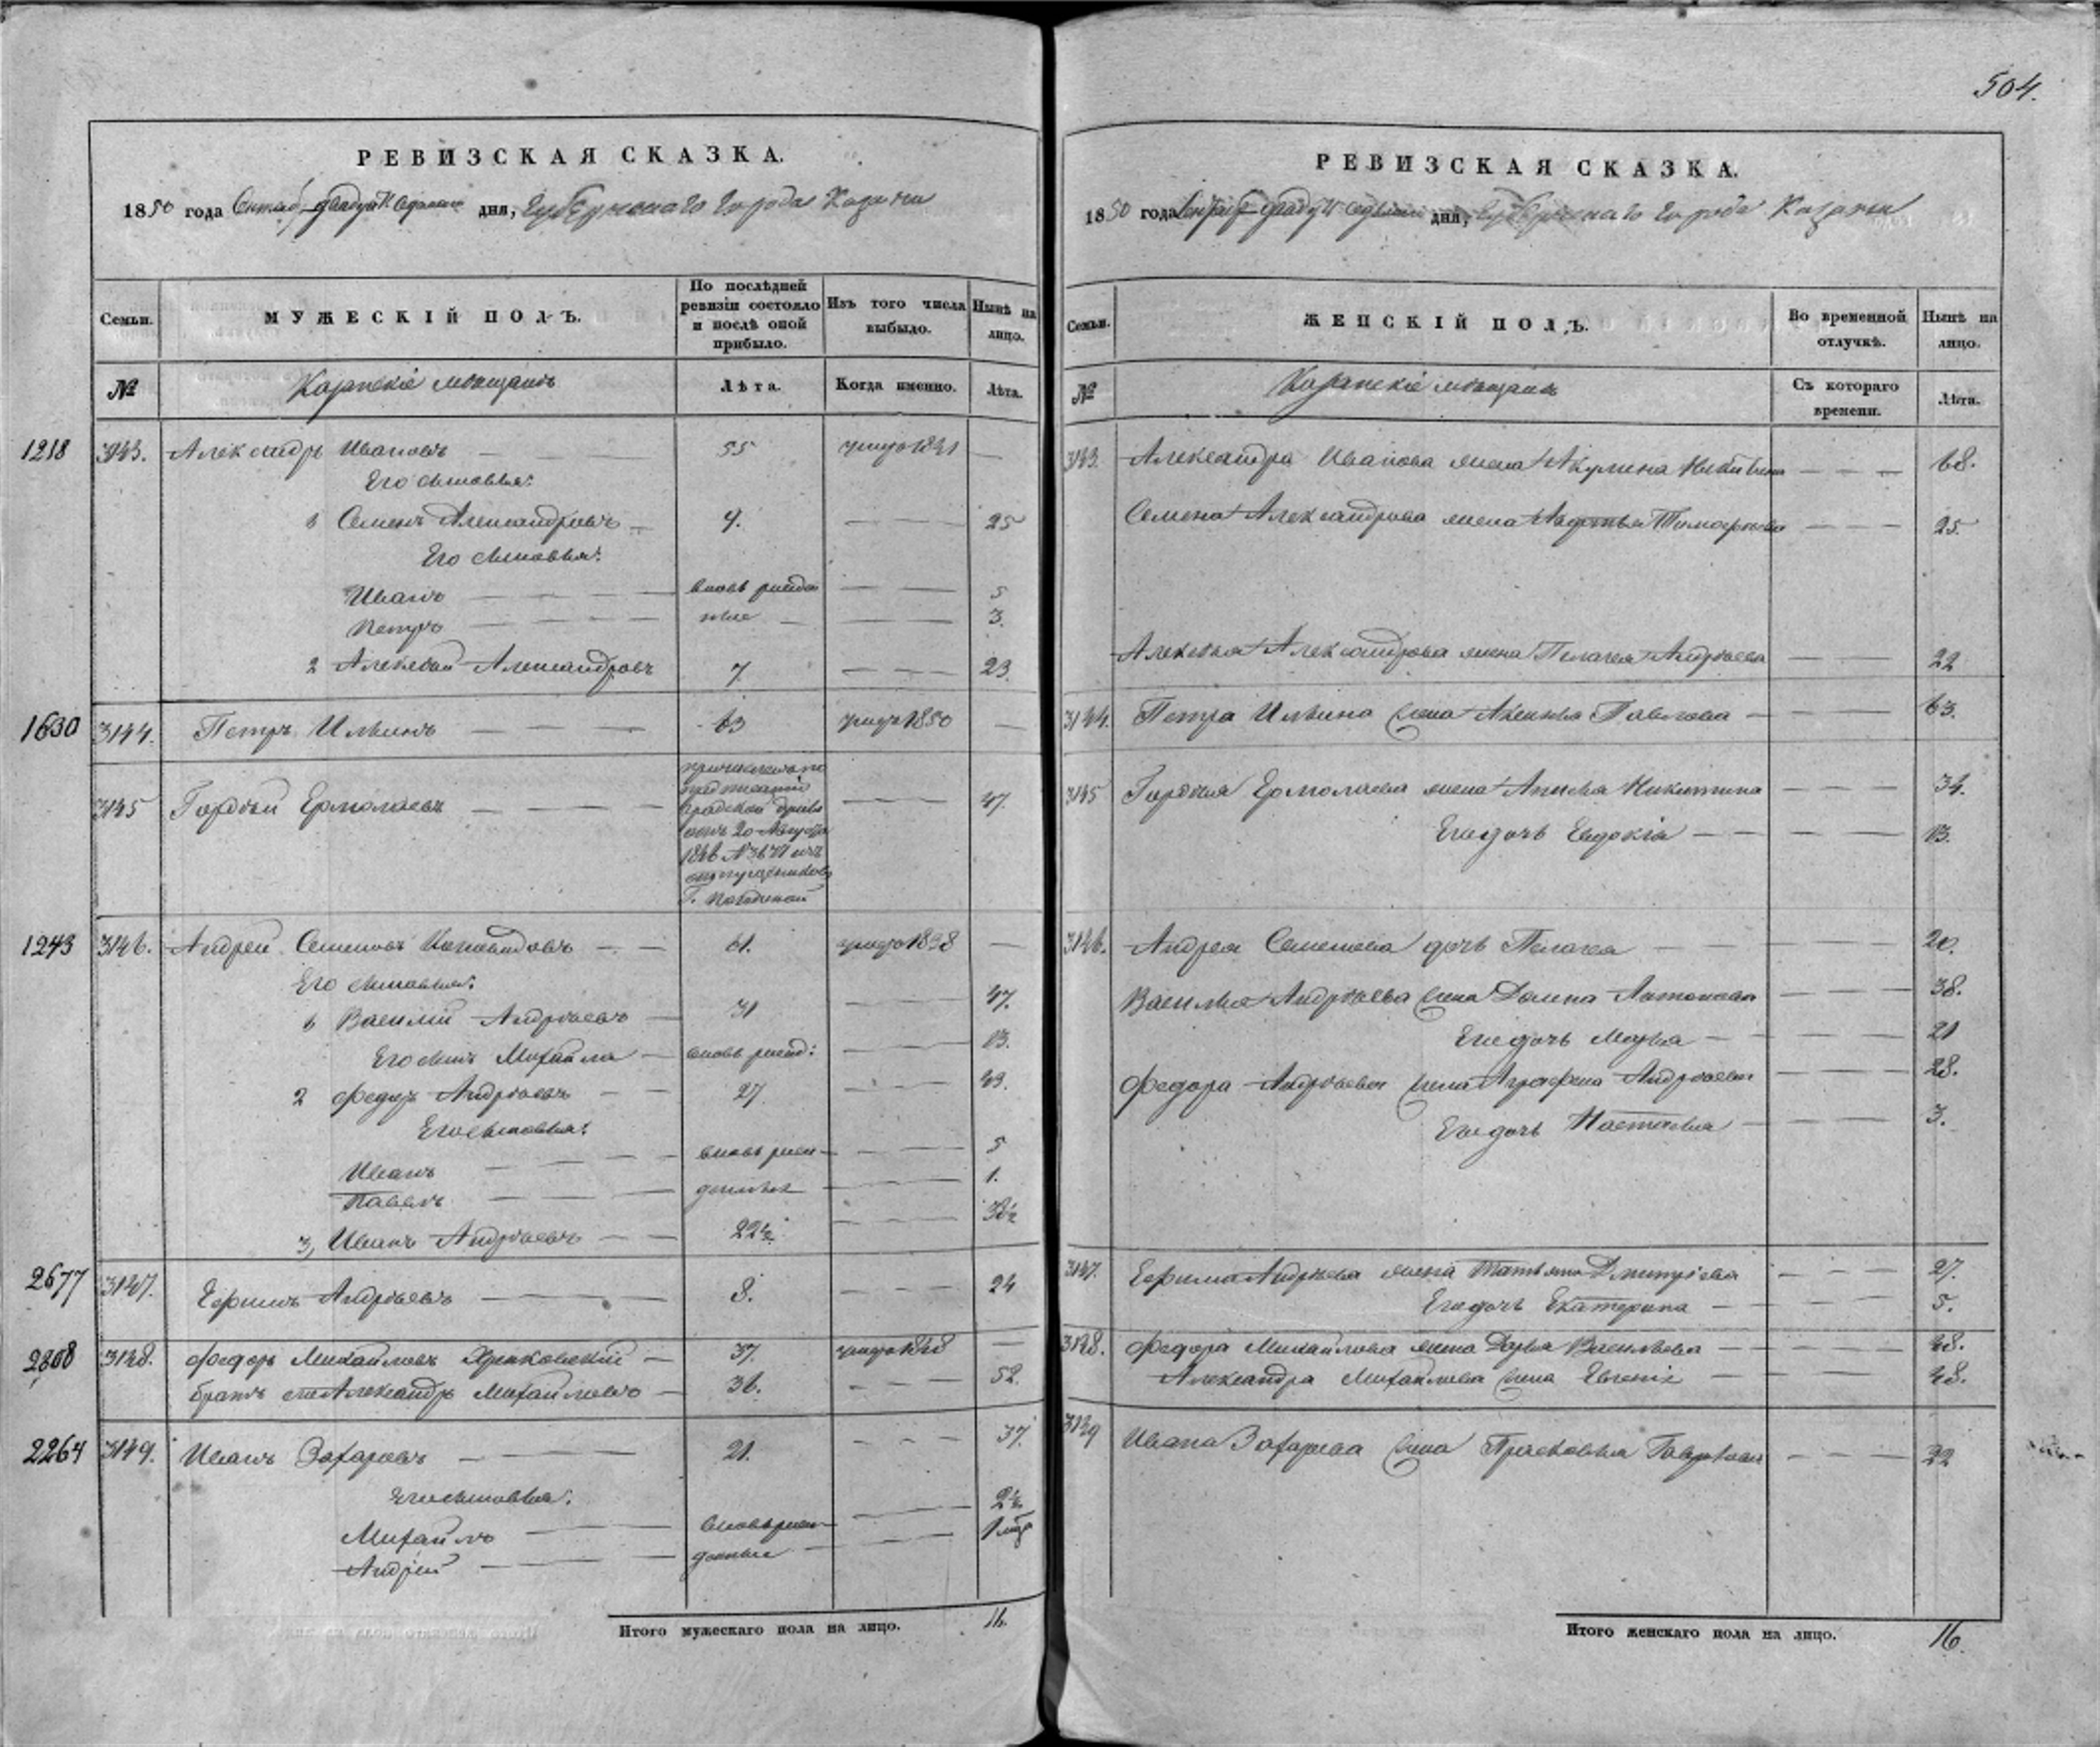 504.
РЕВИЗСКАЯ СКАЗКА.
1850 года дня, Губернскаго Города Казани
Семьи. МУЖЕСКІЙ ПОЛЪ. По послѣдней ревизіи состояло и послѣ оной прибыло. Изъ того числа выбыло. Нынѣ на лицо.
№ Казанскіе мѣщане Лѣта. Когда именно. Лѣта.
1218 3143. Александръ Ивановъ 55 умеръ 1841
Его сыновья:
1 Семенъ Александровъ 9. 25
Его сыновья:
Иванъ вновь рожден 5
Петръ ные 3.
2 Алексѣй Александровъ 7 23.
1630 3144. Петръ Ильинъ 63 умеръ 1850
3145 Гордѣй Ермолаевъ 47.
20 Августа
1846 №
1243 3146. Андрей Семеновъ 61. умеръ 1838
Его сыновья:
1 Василій Андрѣевъ 31 47.
Его сынъ Михайла вновь рожд: 13.
2 Федоръ Андрѣевъ 27 43.
Его сыновья:
Иванъ вновь рож 5
Павелъ денные 1.
3, Иванъ Андрѣевъ 22½ 38½
2677 3147. Ефимъ Андрѣевъ 8. 24
2868 3148. Федоръ Михайловъ 37. умеръ 1848
братъ его Александръ Михайловъ 36. 52.
2264 3149. Иванъ Захаровъ 21. 37.
Его сыновья:
Михайлъ вновь рож 2½
Андрей денные 1 мѣц
Итого мужескаго пола на лицо. 16.
РЕВИЗСКАЯ СКАЗКА.
1850 года дня, Губернскаго Города Казани
Семьи. ЖЕНСКІЙ ПОЛЪ. Во временной отлучкѣ. Нынѣ на лицо.
№ Казанскіе мѣщане Съ котораго времени. Лѣта.
3143. Александра Иванова жена Акулина Никитина 68.
Семена Александрова жена Авдотья Тимофѣева 25.
Алексѣя Александрова жена Пелагея Андрѣева 22
3144. Петра Ильина жена Аксинья Павлова 63.
3145 Гордѣя Ермолаева жена Анисья Никитина 34.
Его дочь Евдокія 13.
3146. Андрея Семенова дочь Пелагея 20.
Василья Андрѣева жена Домна Антонова 38.
Его дочь Марья 21
Федора Андрѣева жена Аграфена Андрѣева 28.
Его дочь Настасья 3.
3147. Ефима Андрѣева жена Татьяна Дмитріева 27.
Его дочь Екатерина 5.
3148. Федора Михайлова жена Дарья Васильева 48.
Александра Михайлова жена Евгенія 48.
3149 Ивана Захарова жена Прасковья 22
Итого женскаго пола на лицо. 16.